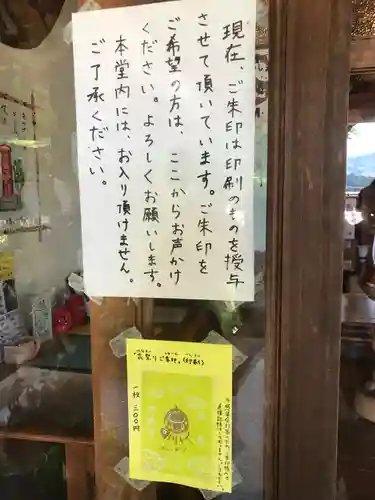 現在、ご朱印は印刷のものを授与
させて頂いています。ご朱印を
ご希望の方は、ここからお声かけ
ください。よろしくお願いします。
本堂内には、お入り頂けません。
ご了承ください。
一枚 三〇〇円